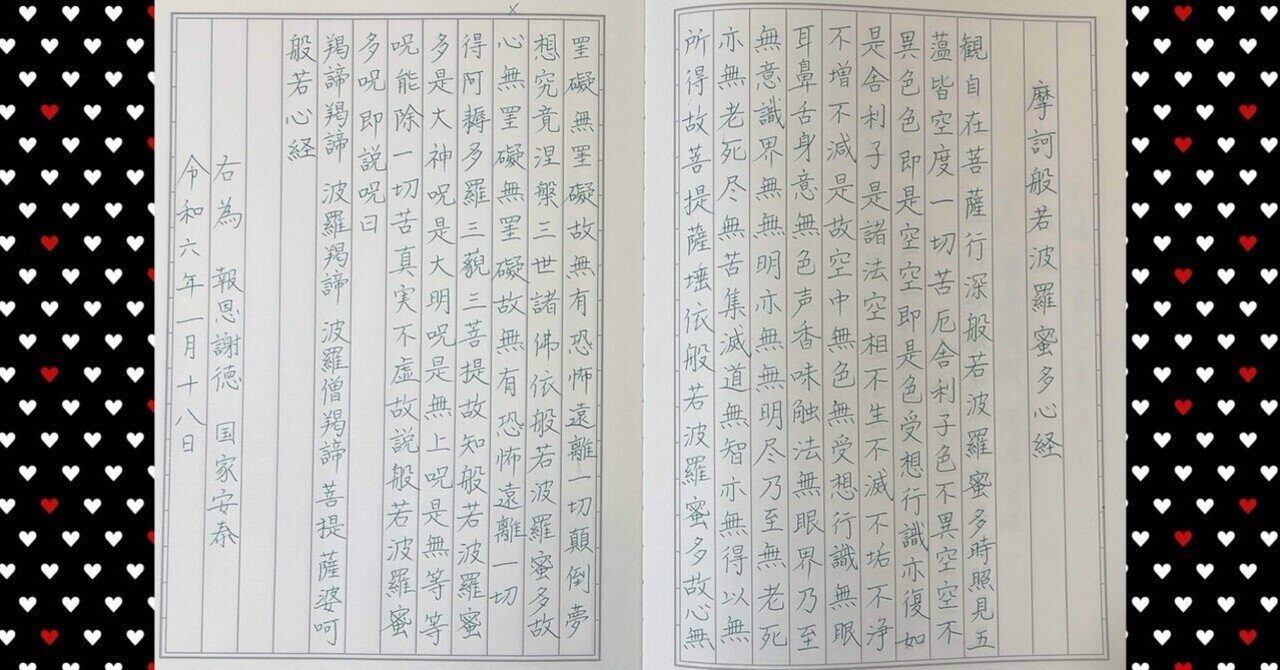 摩訶般若波羅蜜多心経
観自在菩薩行深般若波羅蜜多時照見五
薀皆空度一切苦厄舎利子色不異空空不
異色色即是空空即是色受想行識亦復如
是舎利子是諸法空相不生不滅不垢不浄
不増不減是故空中無色無受想行識無眼
耳鼻舌身意無色声香味触法無眼界乃至
無意識界無無明亦無無明尽乃至無老死
亦無老死尽無苦集滅道無智亦無得以無
所得故菩提薩埵依般若波羅蜜多故心無
罣礙無罣礙故無有恐怖遠離一切顛倒夢
想究竟涅槃三世諸佛依般若波羅蜜多故
×
心無罣礙無罣礙故無有恐怖遠離一切
得阿耨多羅三藐三菩提故知般若波羅蜜
多是大神呪是大明呪是無上呪是無等等
呪能除一切苦真実不虚故説般若波羅蜜
多呪即説呪曰
羯諦羯諦 波羅羯諦 波羅僧羯諦 菩提薩婆呵
般若心経
右為 報恩謝徳 国家安泰
令和六年一月十八日